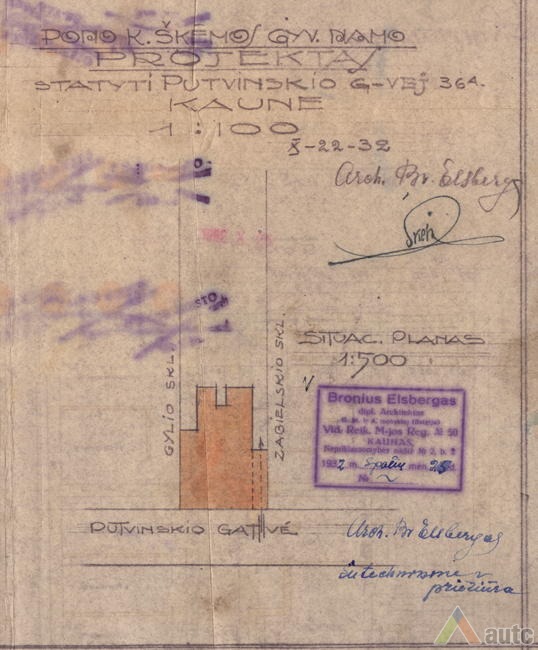 PONO K. ŠKĖMOS GYV. NAMO
PROJEKTAS
STATYTI PUTVINSKIO G-VĖJ 36A.
KAUNE
1:100
X-22-32
Arch. Br. Elsbergas
STO
SITUAC. PLANAS
1:500
GYLIO SKL.
ZABIELSKIO SKL.
V
Bronius Elsbergas
dipl. Architektas
Vid. Reik. M-jos Reg. № 50
KAUNAS,
Nepriklausomybės aikštė № 2, b. 2
1932 m. Spalių mėn. 25 d.
№
PUTVINSKIO GATVĖ
Arch. Br. Elsbergas
priežiūra
autc